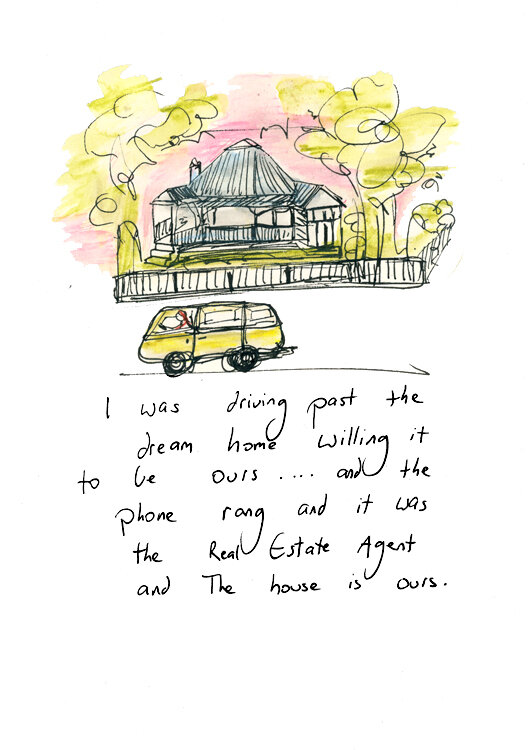 I was driving past the
dream home willing it
to be ours .... and the
phone rang and it was
the Real Estate Agent
and The house is ours.